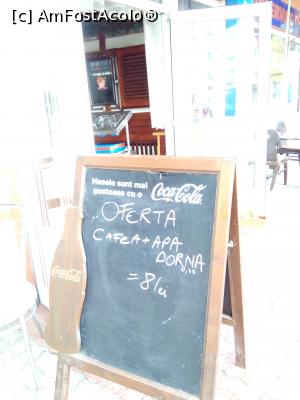 [c] AmFostAcolo®
Mesele sunt mai
gustoase cu o Coca-Cola
OFERTA
CAFEA + APA
DORNA
= 8 lei
Coca-Cola